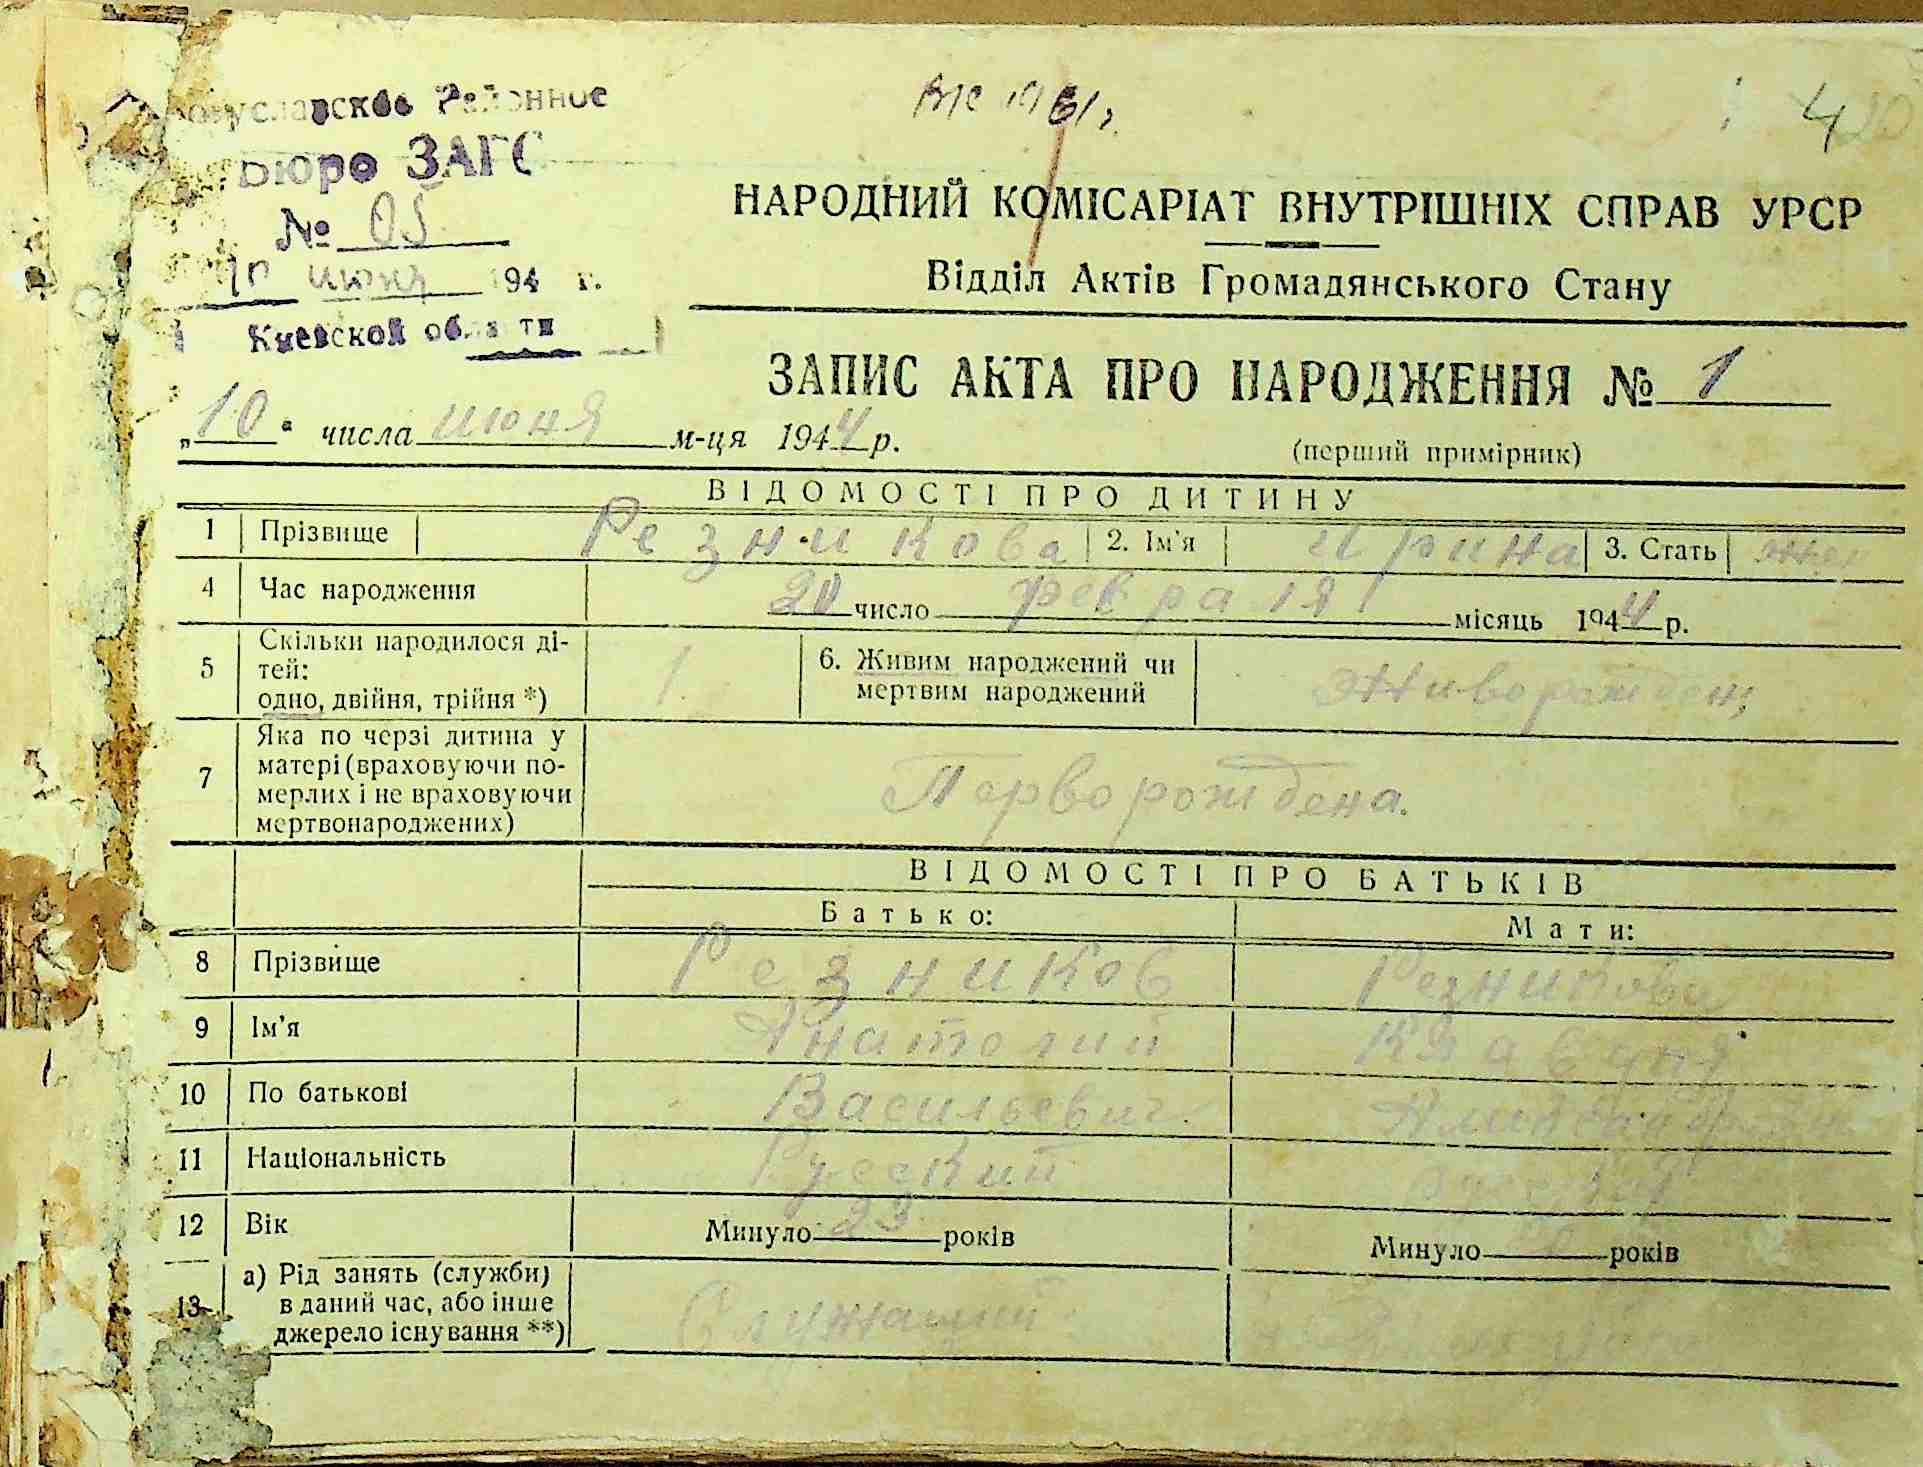 Районное
Бюро ЗАГС
№ 05
10 июня 194 г.
Киевской области
1961 г.
4
НАРОДНИЙ КОМІСАРІАТ ВНУТРІШНІХ СПРАВ УРСР
Відділ Актів Громадянського Стану
ЗАПИС АКТА ПРО НАРОДЖЕННЯ № 1
„10“ числа июня м-ця 1944 р.
(перший примірник)
ВІДОМОСТІ ПРО ДИТИНУ
1 Прізвище Резникова 2. Ім'я Ирина 3. Стать жен
4 Час народження 20 число февраля місяць 1944 р.
5 Скільки народилося ді-
тей:
одно, двійня, трійня *) 1
6. Живим народжений чи
мертвим народжений Живорожден,
7 Яка по черзі дитина у
матері (враховуючи по-
мерлих і не враховуючи
мертвонароджених) Перворождена.
ВІДОМОСТІ ПРО БАТЬКІВ
Батько: Мати:
8 Прізвище Резников Резникова
9 Ім'я Анатолий Клавдия
10 По батькові Васильевич
11 Національність Русский русская
12 Вік Минуло 23 років Минуло років
13 а) Рід занять (служби)
в даний час, або інше
джерело існування **) Служащий